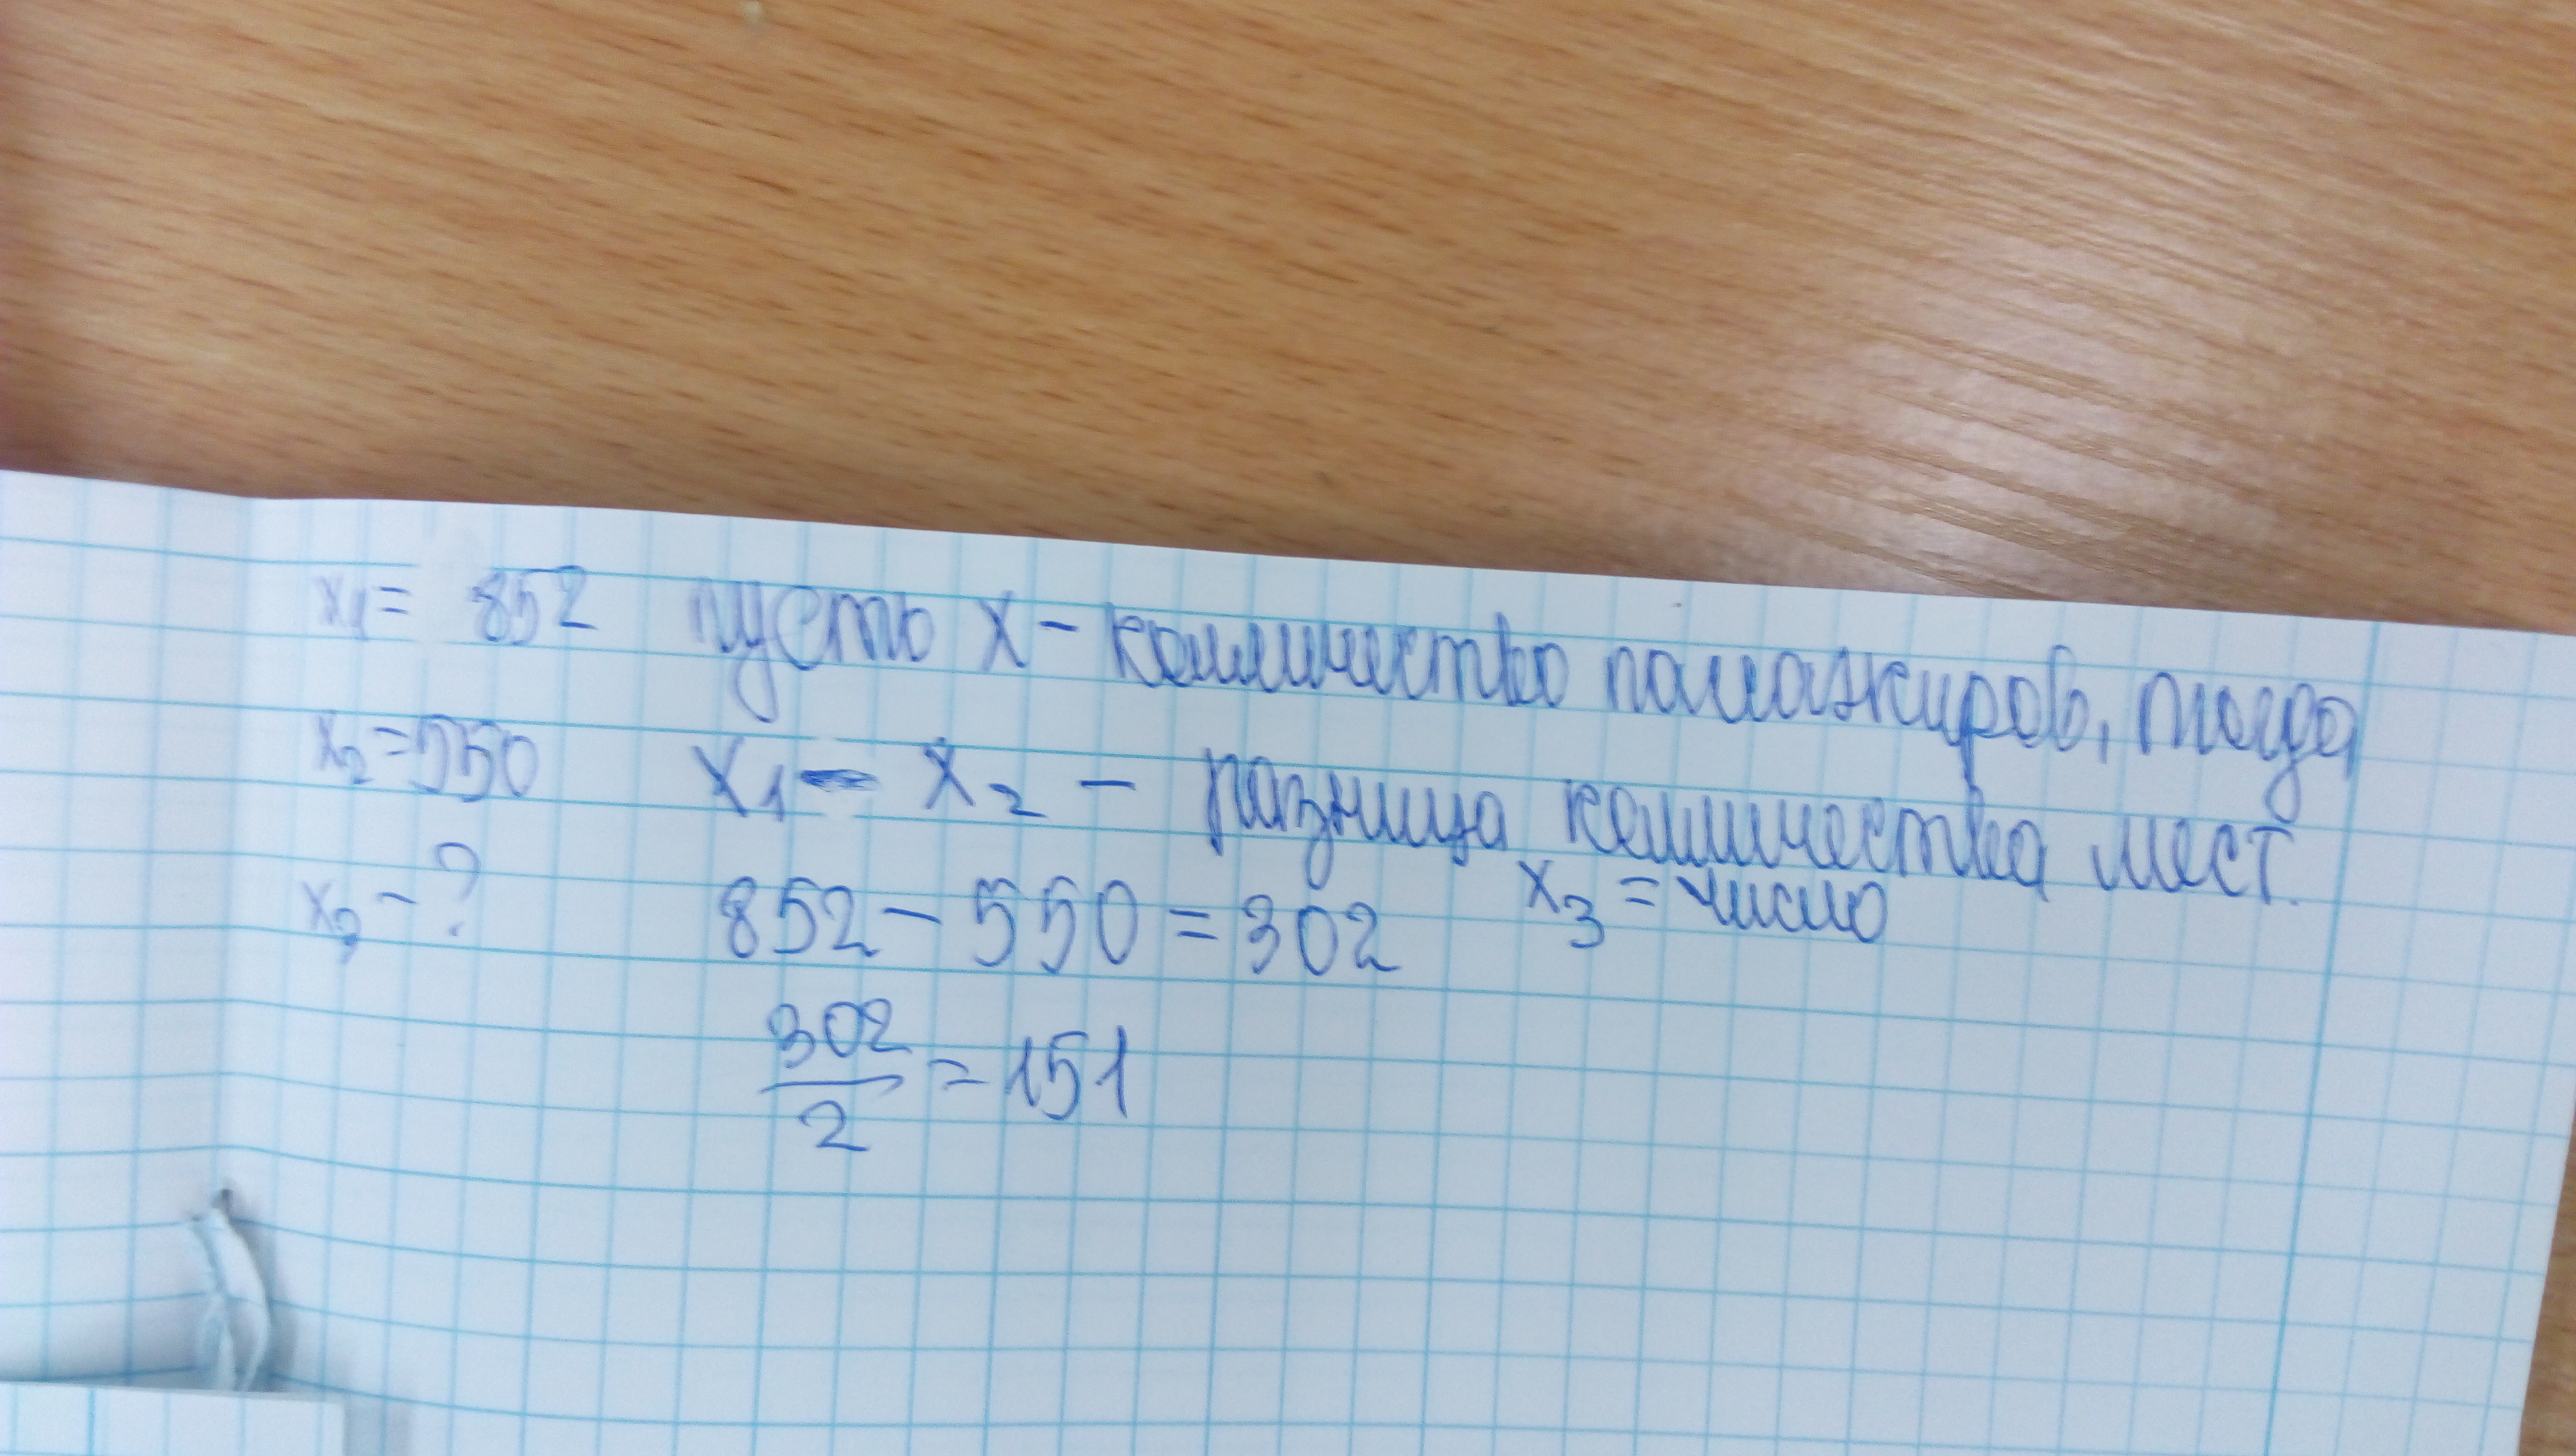 x₁ = 852 пусть x - количество пассажиров, тогда
x₂ = 550 x₁ - x₂ - разница количества мест.
x₃ - ? 852 - 550 = 302 x₃ = число
302/2 = 151